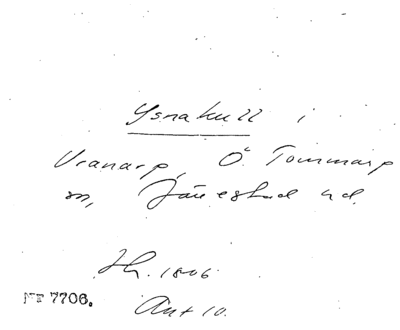 Ysnakull i
Vranarp, Ö. Tommarp
sn, Järrestad hd.
Jh. 1806
MF 7706.
Ant 10.